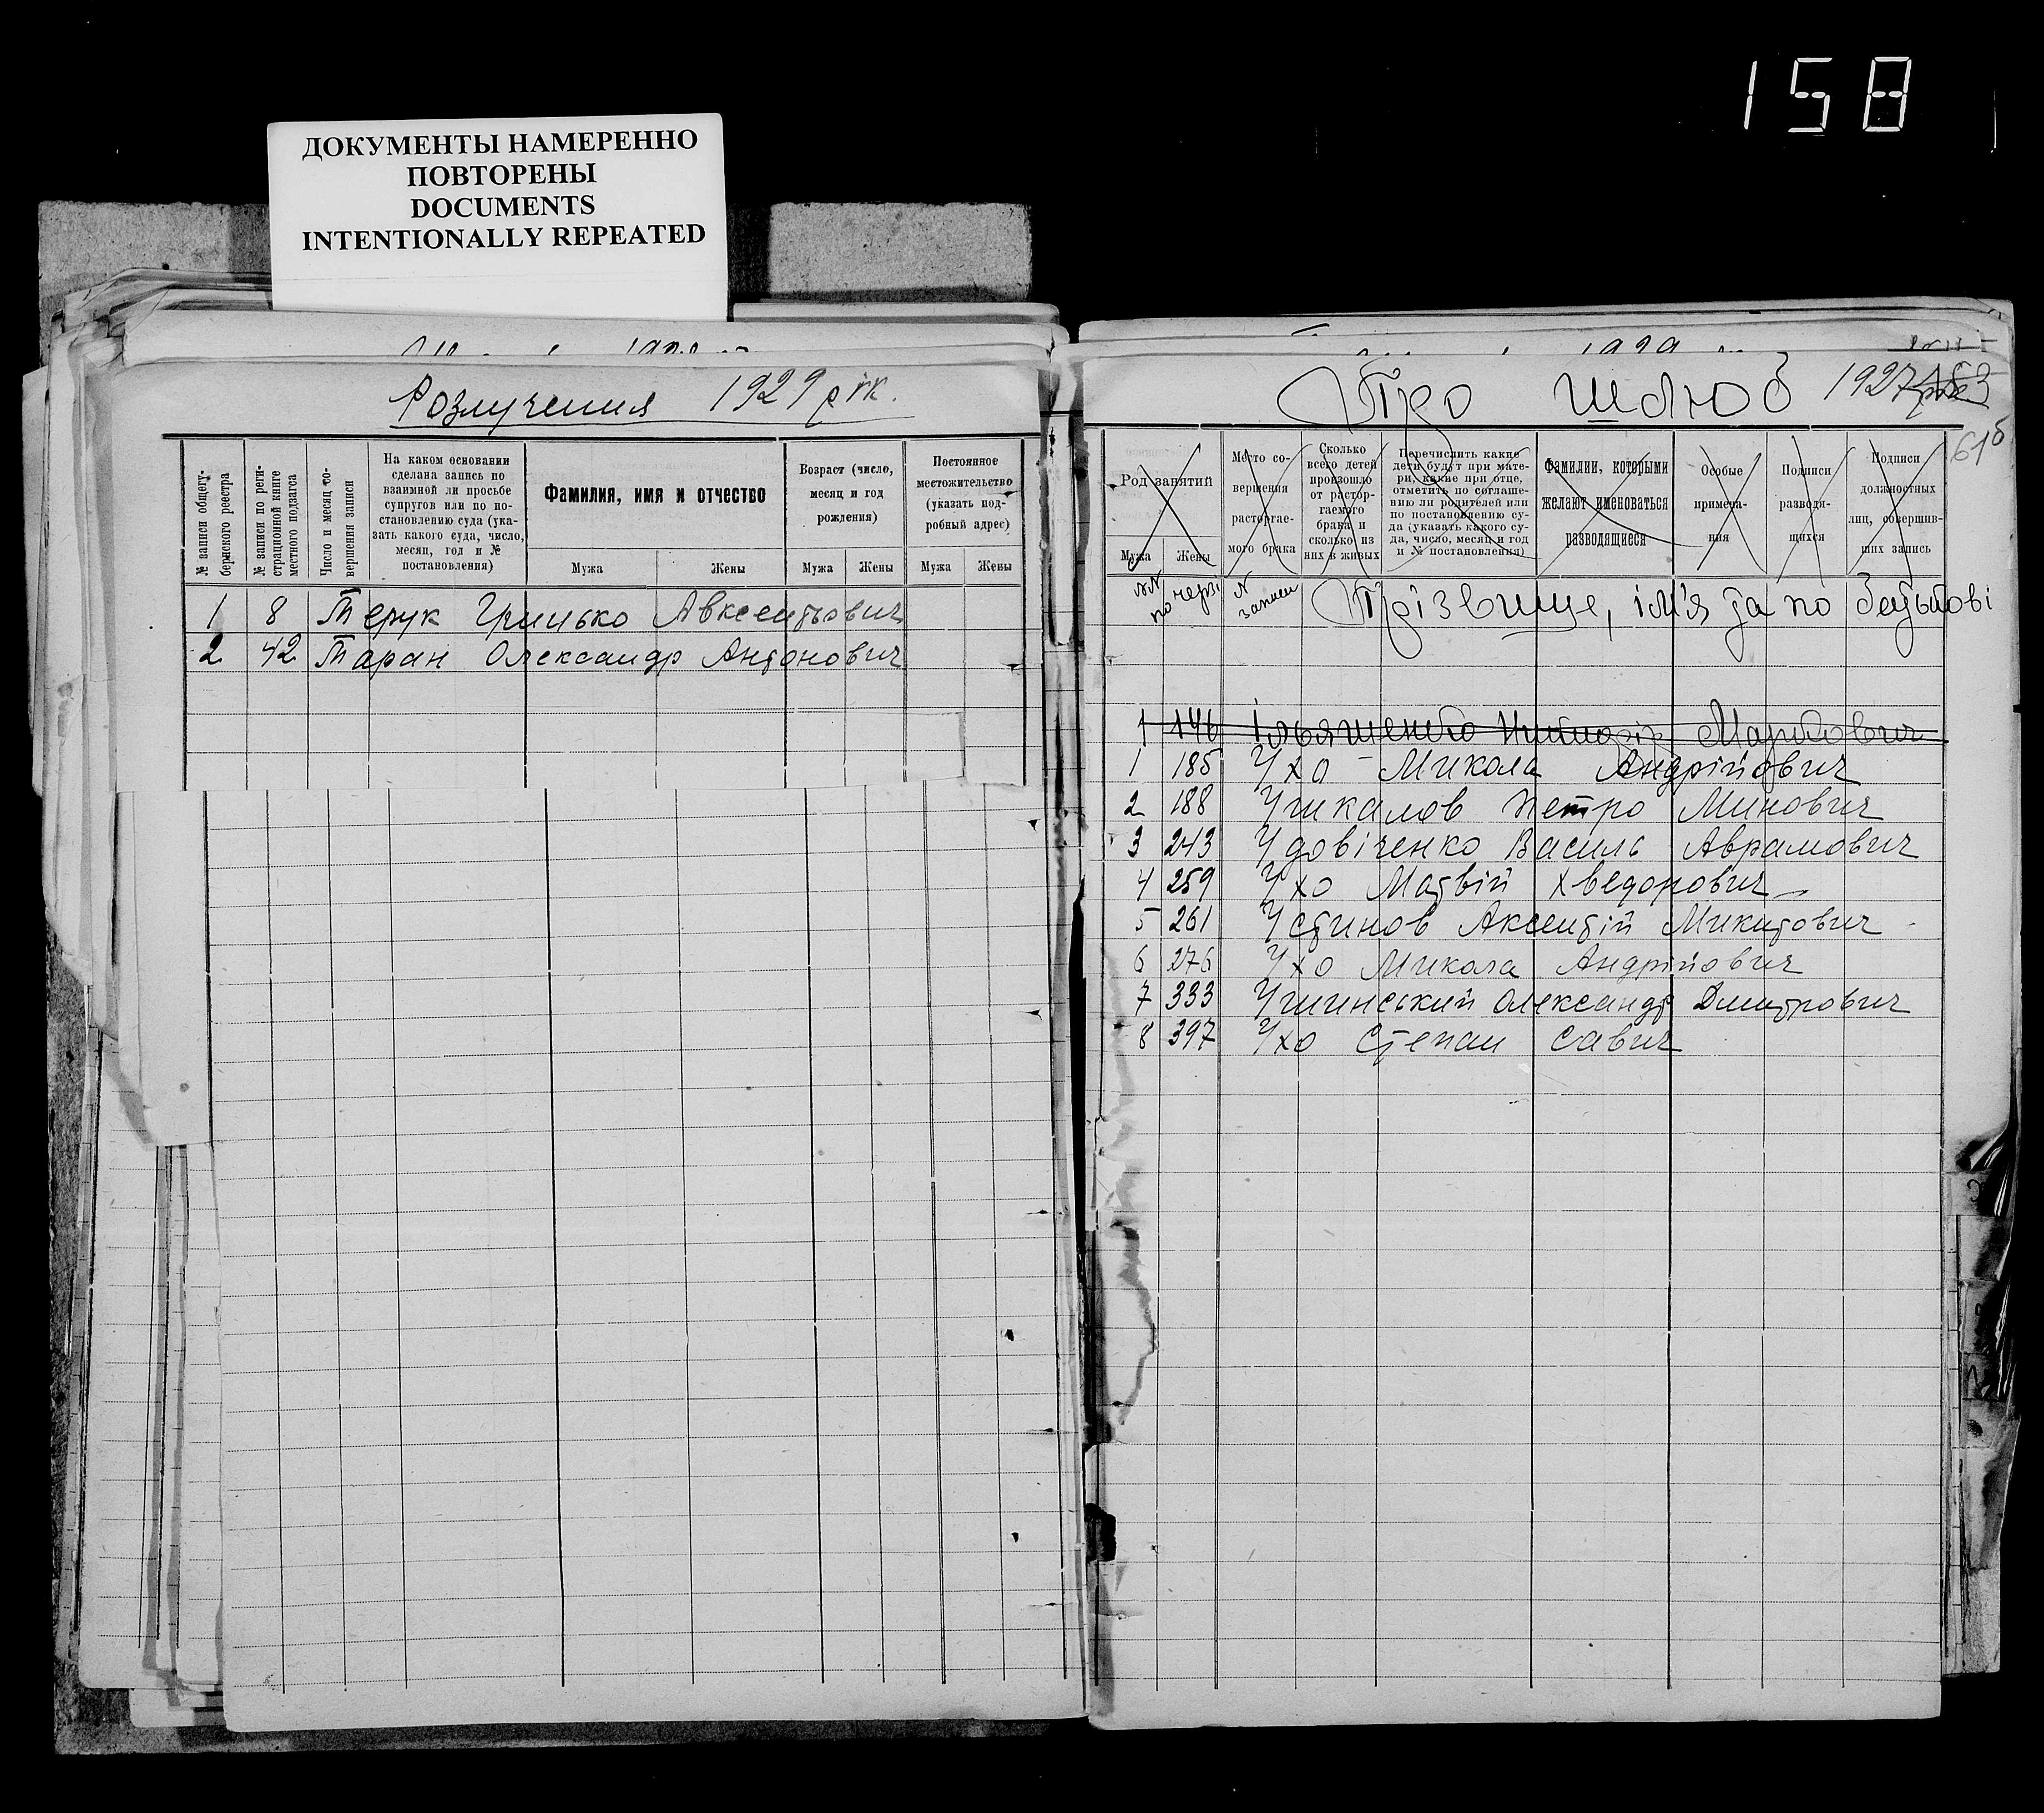 158
ДОКУМЕНТЫ НАМЕРЕННО
ПОВТОРЕНЫ
DOCUMENTS
INTENTIONALLY REPEATED
Розлучения 1929 рік.
№ записи общегу-
бернского реестра
№ записи по реги-
страционной книге
местного подзагса
Число и месяц со-
вершения записи
На каком основании
сделана запись по
взаимной ли просьбе
супругов или по по-
становлению суда (ука-
зать какого суда, число,
месяц, год и №
постановления)
Фамилия, имя и отчество
Мужа Жены
Возраст (число,
месяц и год
рождения)
Мужа Жены
Постоянное
местожительство
(указать под-
робный адрес)
Мужа Жены
1 8 Терук Гринько Авксентьович
2 42 Таран Олександр Антонович
Про шлюб 1927
61б
Род занятий
Мужа Жены
Место со-
вершения
расторгае-
мого брака
Сколько
всего детей
произошло
от растор-
гаемого
брака и
сколько из
них в живых
Перечислить какие
дети будут при мате-
ри, какие при отце,
отметить по соглаше-
нию ли родителей или
по постановлению су-
да (указать какого су-
да, число, месяц и год
и № постановления)
Фамилии, которыми
желают именоваться
разводящиеся
Особые
примеча-
ния
Подписи
разводя-
щихся
Подписи
должностных
лиц, совершив-
ших запись
NN по черзі N записи Прізвище, ім'я та по батькові
1 146 Ільяшенко Маркович
1 185 Ухо Микола Андрійович
2 188 Ушкалов Петро Минович
3 243 Удовіченко Василь Аврамович
4 259 Ухо Матвій Хведорович
5 261 Устинов Аксентій Микитович
6 276 Ухо Микола Андрійович
7 333 Ушинський Олександр Дмитрович
8 397 Ухо Степан Савич